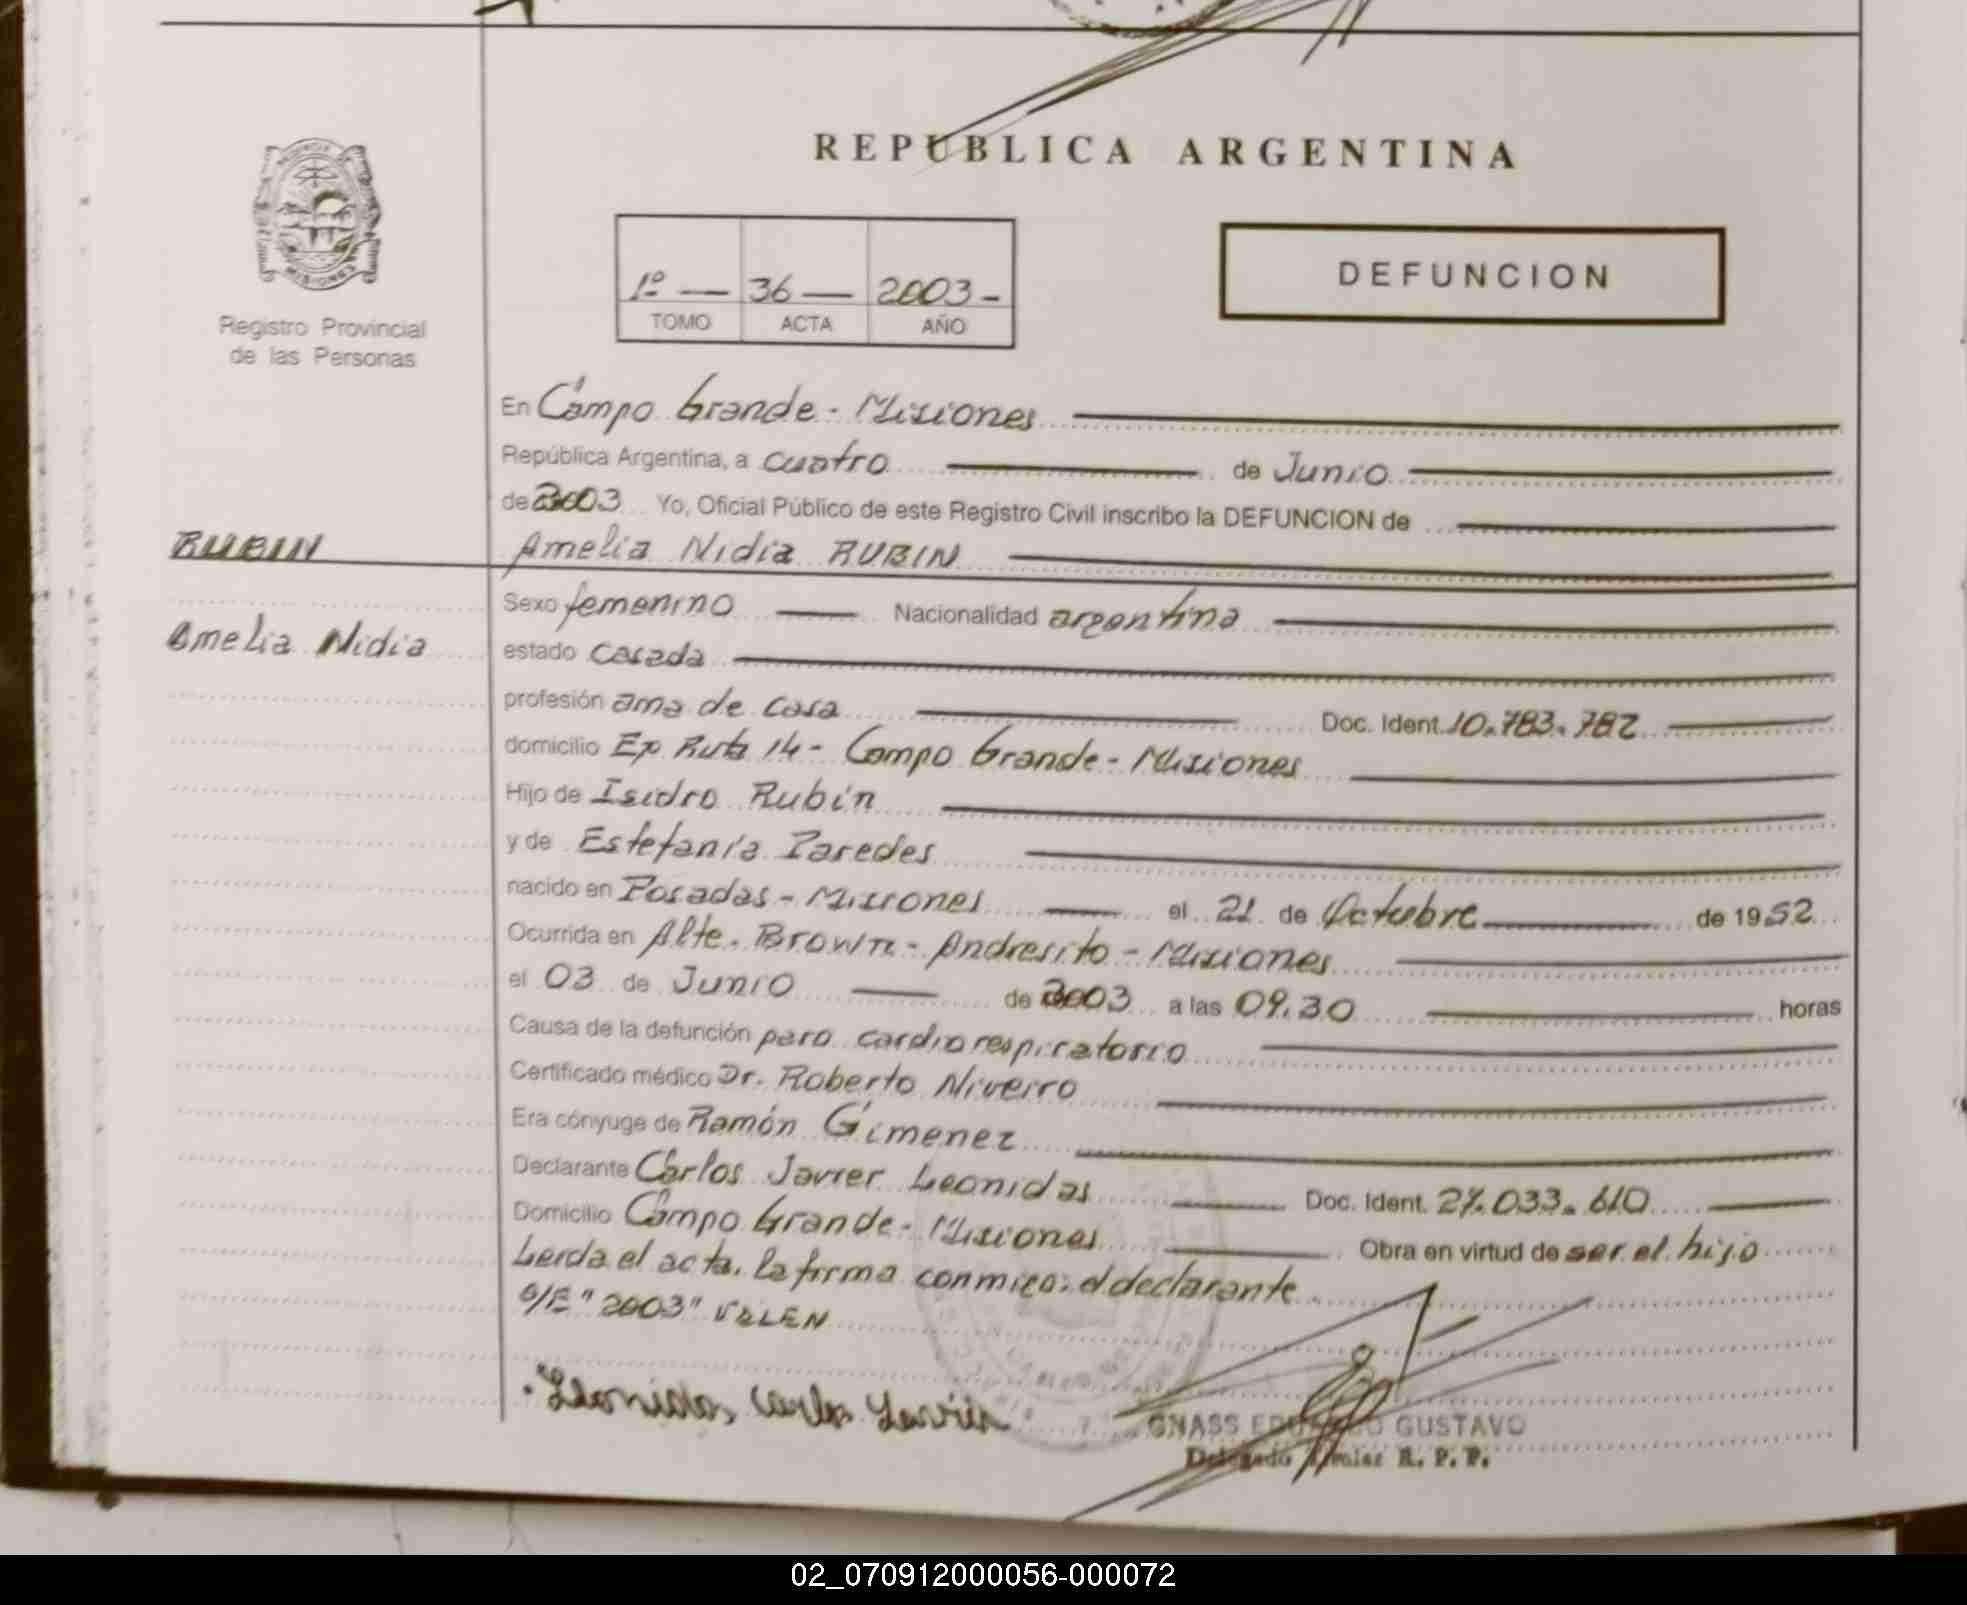 REPUBLICA ARGENTINA
DEFUNCION
1º — 36 — 2003 -
TOMO ACTA AÑO
Registro Provincial
de las Personas
En Campo Grande - Misiones
República Argentina, a cuatro de Junio
de 2003 Yo, Oficial Público de este Registro Civil inscribo la DEFUNCION de
RUBIN
Amelia Nidia RUBIN
Sexo femenino Nacionalidad argentina
Amelia Nidia
estado casada
profesión ama de casa Doc. Ident. 10.783.782
domicilio Ex Ruta 14 - Campo Grande - Misiones
Hijo de Isidro Rubin
y de Estefanía Paredes
nacido en Posadas - Misiones el 21 de Octubre de 1952
Ocurrida en Alte. Brown - Andresito - Misiones
el 03 de Junio de 2003 a las 09.30 horas
Causa de la defunción paro cardiorespiratorio
Certificado médico Dr. Roberto Niveiro
Era cónyuge de Ramón Gimenez
Declarante Carlos Javier Leonidas Doc. Ident. 27.033.610
Domicilio Campo Grande - Misiones Obra en virtud de ser el hijo
Leida el acta, la firma conmigo: el declarante
S/E "2003" VALEN
Leonidas Carlos Javier
GNASS EDUARDO GUSTAVO
Delegado R. P. P.
02_070912000056-000072